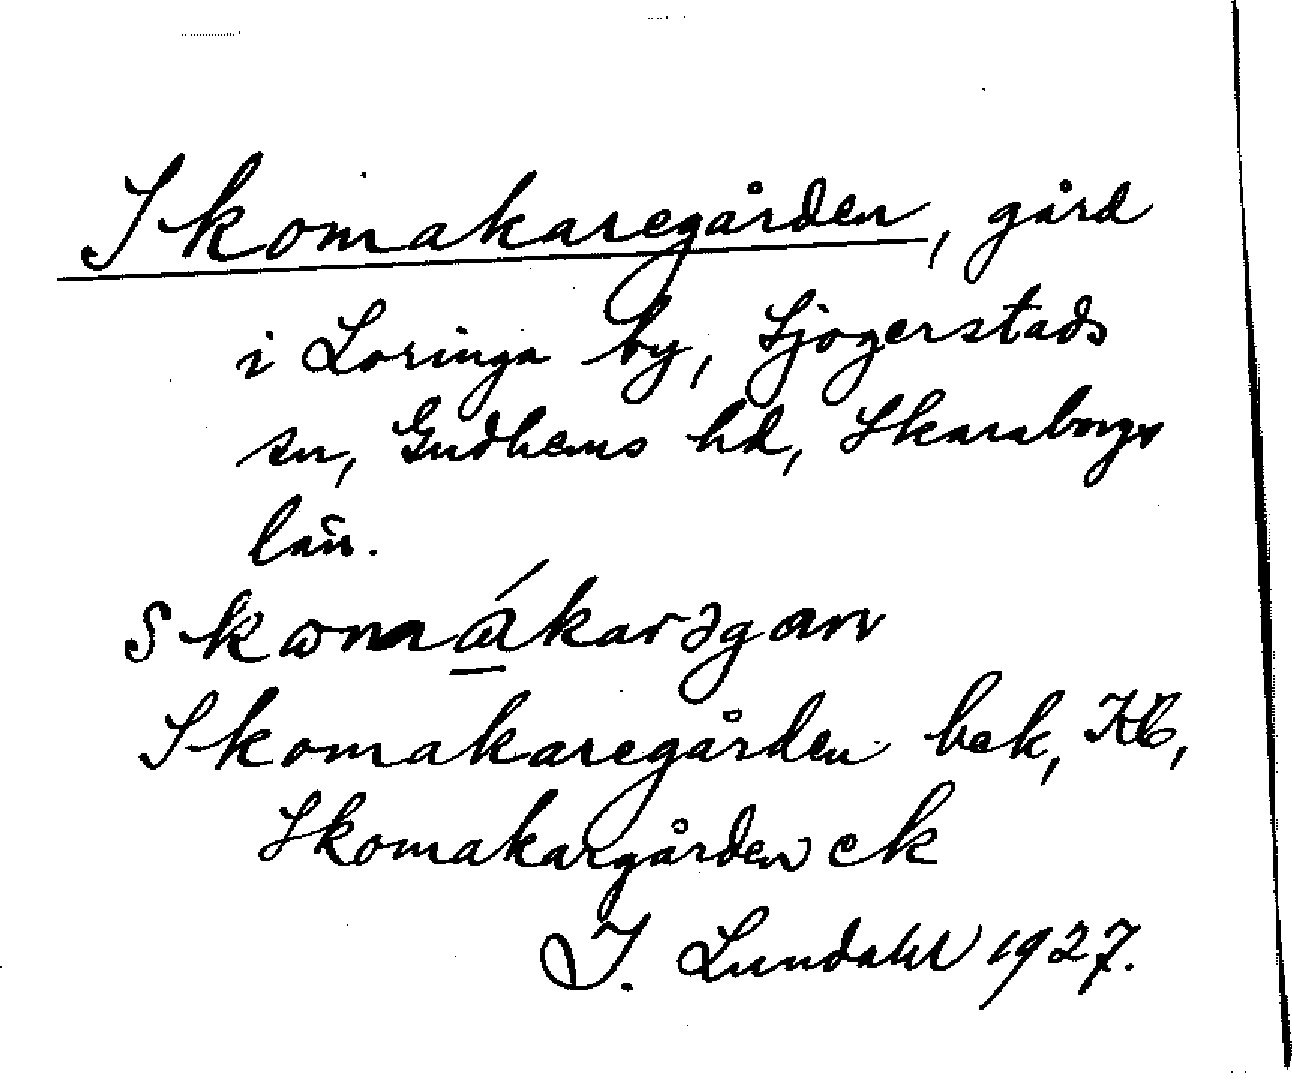 Skomakaregården, gård
i Loringa by, Sjogerstads
sn, Gudhems hd, Skaraborgs
län.
skomákarəgan
Skomakaregården bek, Kb,
Skomakargården ek
I. Lundahl 1927.